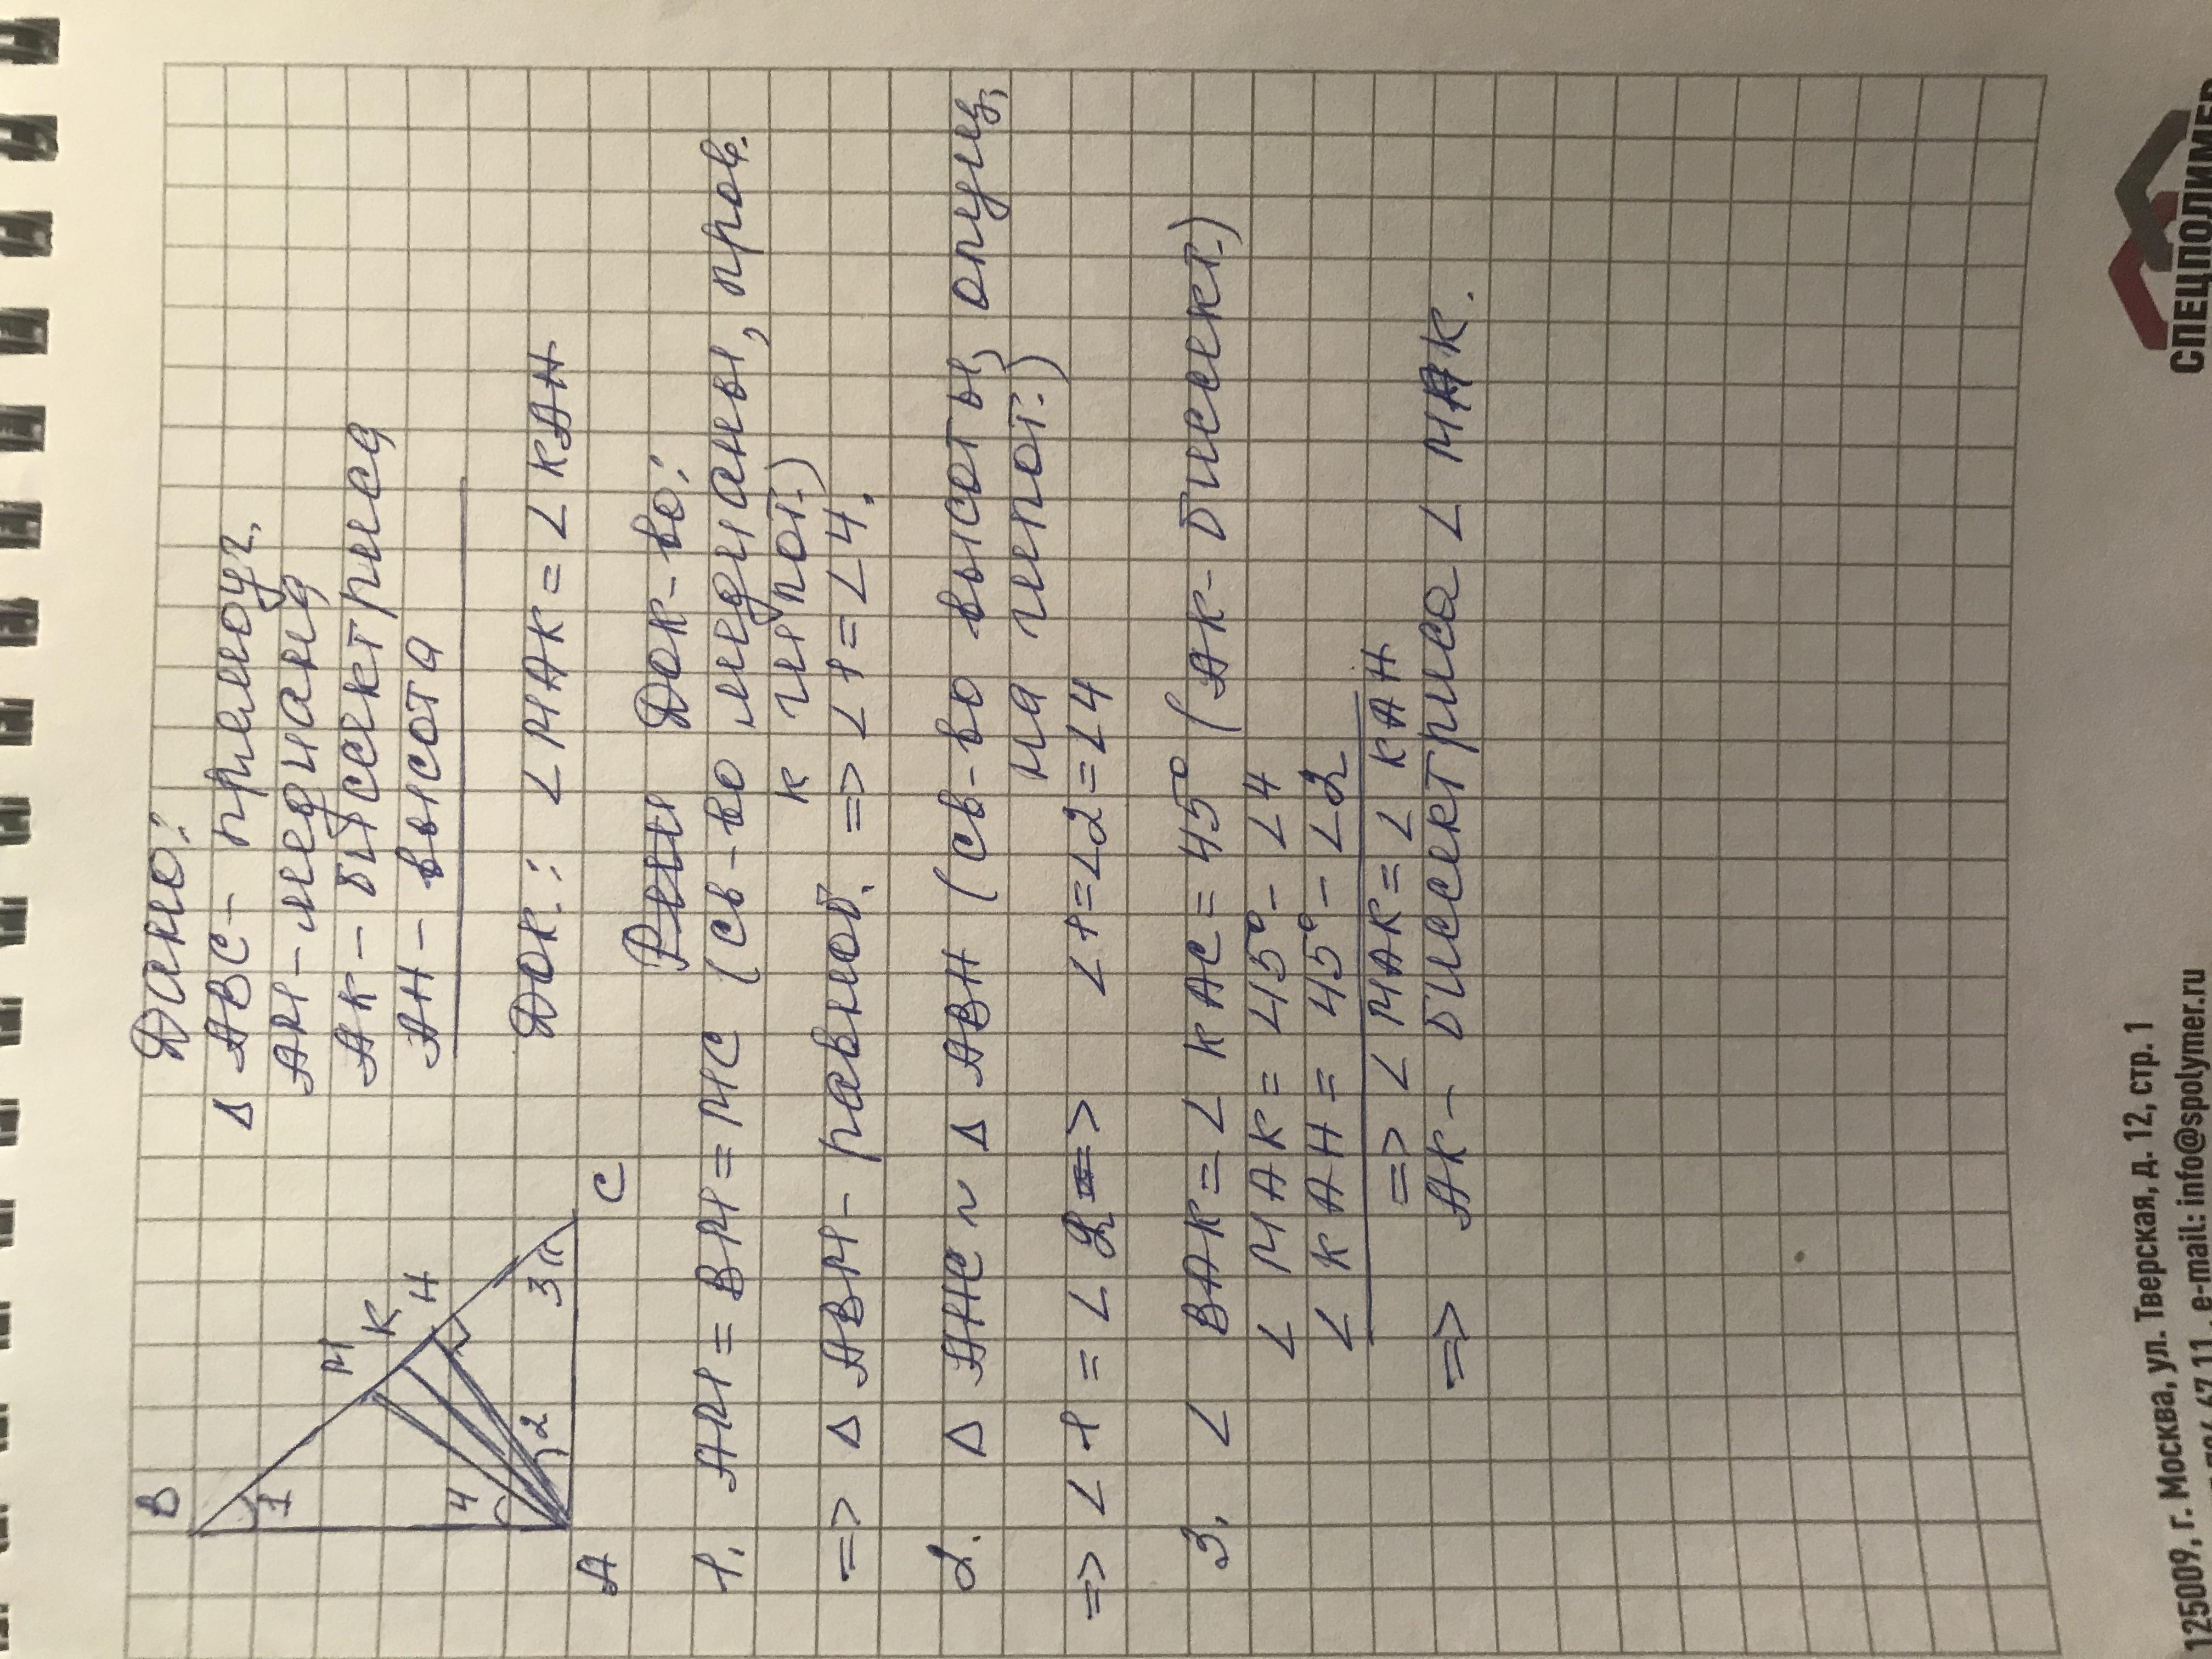 Дано:
Δ ABC - прямоуг.
AM - медиана
AK - бисектриса
AH - высота
Док.: ∠ MAK = ∠ KAH
B
1
M
K
H
4
2
3
A
C
Док-во:
1. AM = BM = MC (св-во медианы, пров.
к гипот.)
=> Δ ABM - равноб. => ∠1 = ∠4.
2. Δ AHC ~ Δ ABH (св-во высоты, опущ,
на гипот.)
=> ∠1 = ∠2 => ∠1=∠2=∠4
3. ∠ BAK = ∠ KAC = 45° (AK - бисект.)
∠ MAK = 45° - ∠4
∠ KAH = 45° - ∠2
=> ∠ MAK = ∠ KAH
=> AK - бисектриса ∠ MAK.
СПЕЦПОЛИМЕР
125009, г. Москва, ул. Тверская, д. 12, стр. 1
67 11, e-mail: info@spolymer.ru